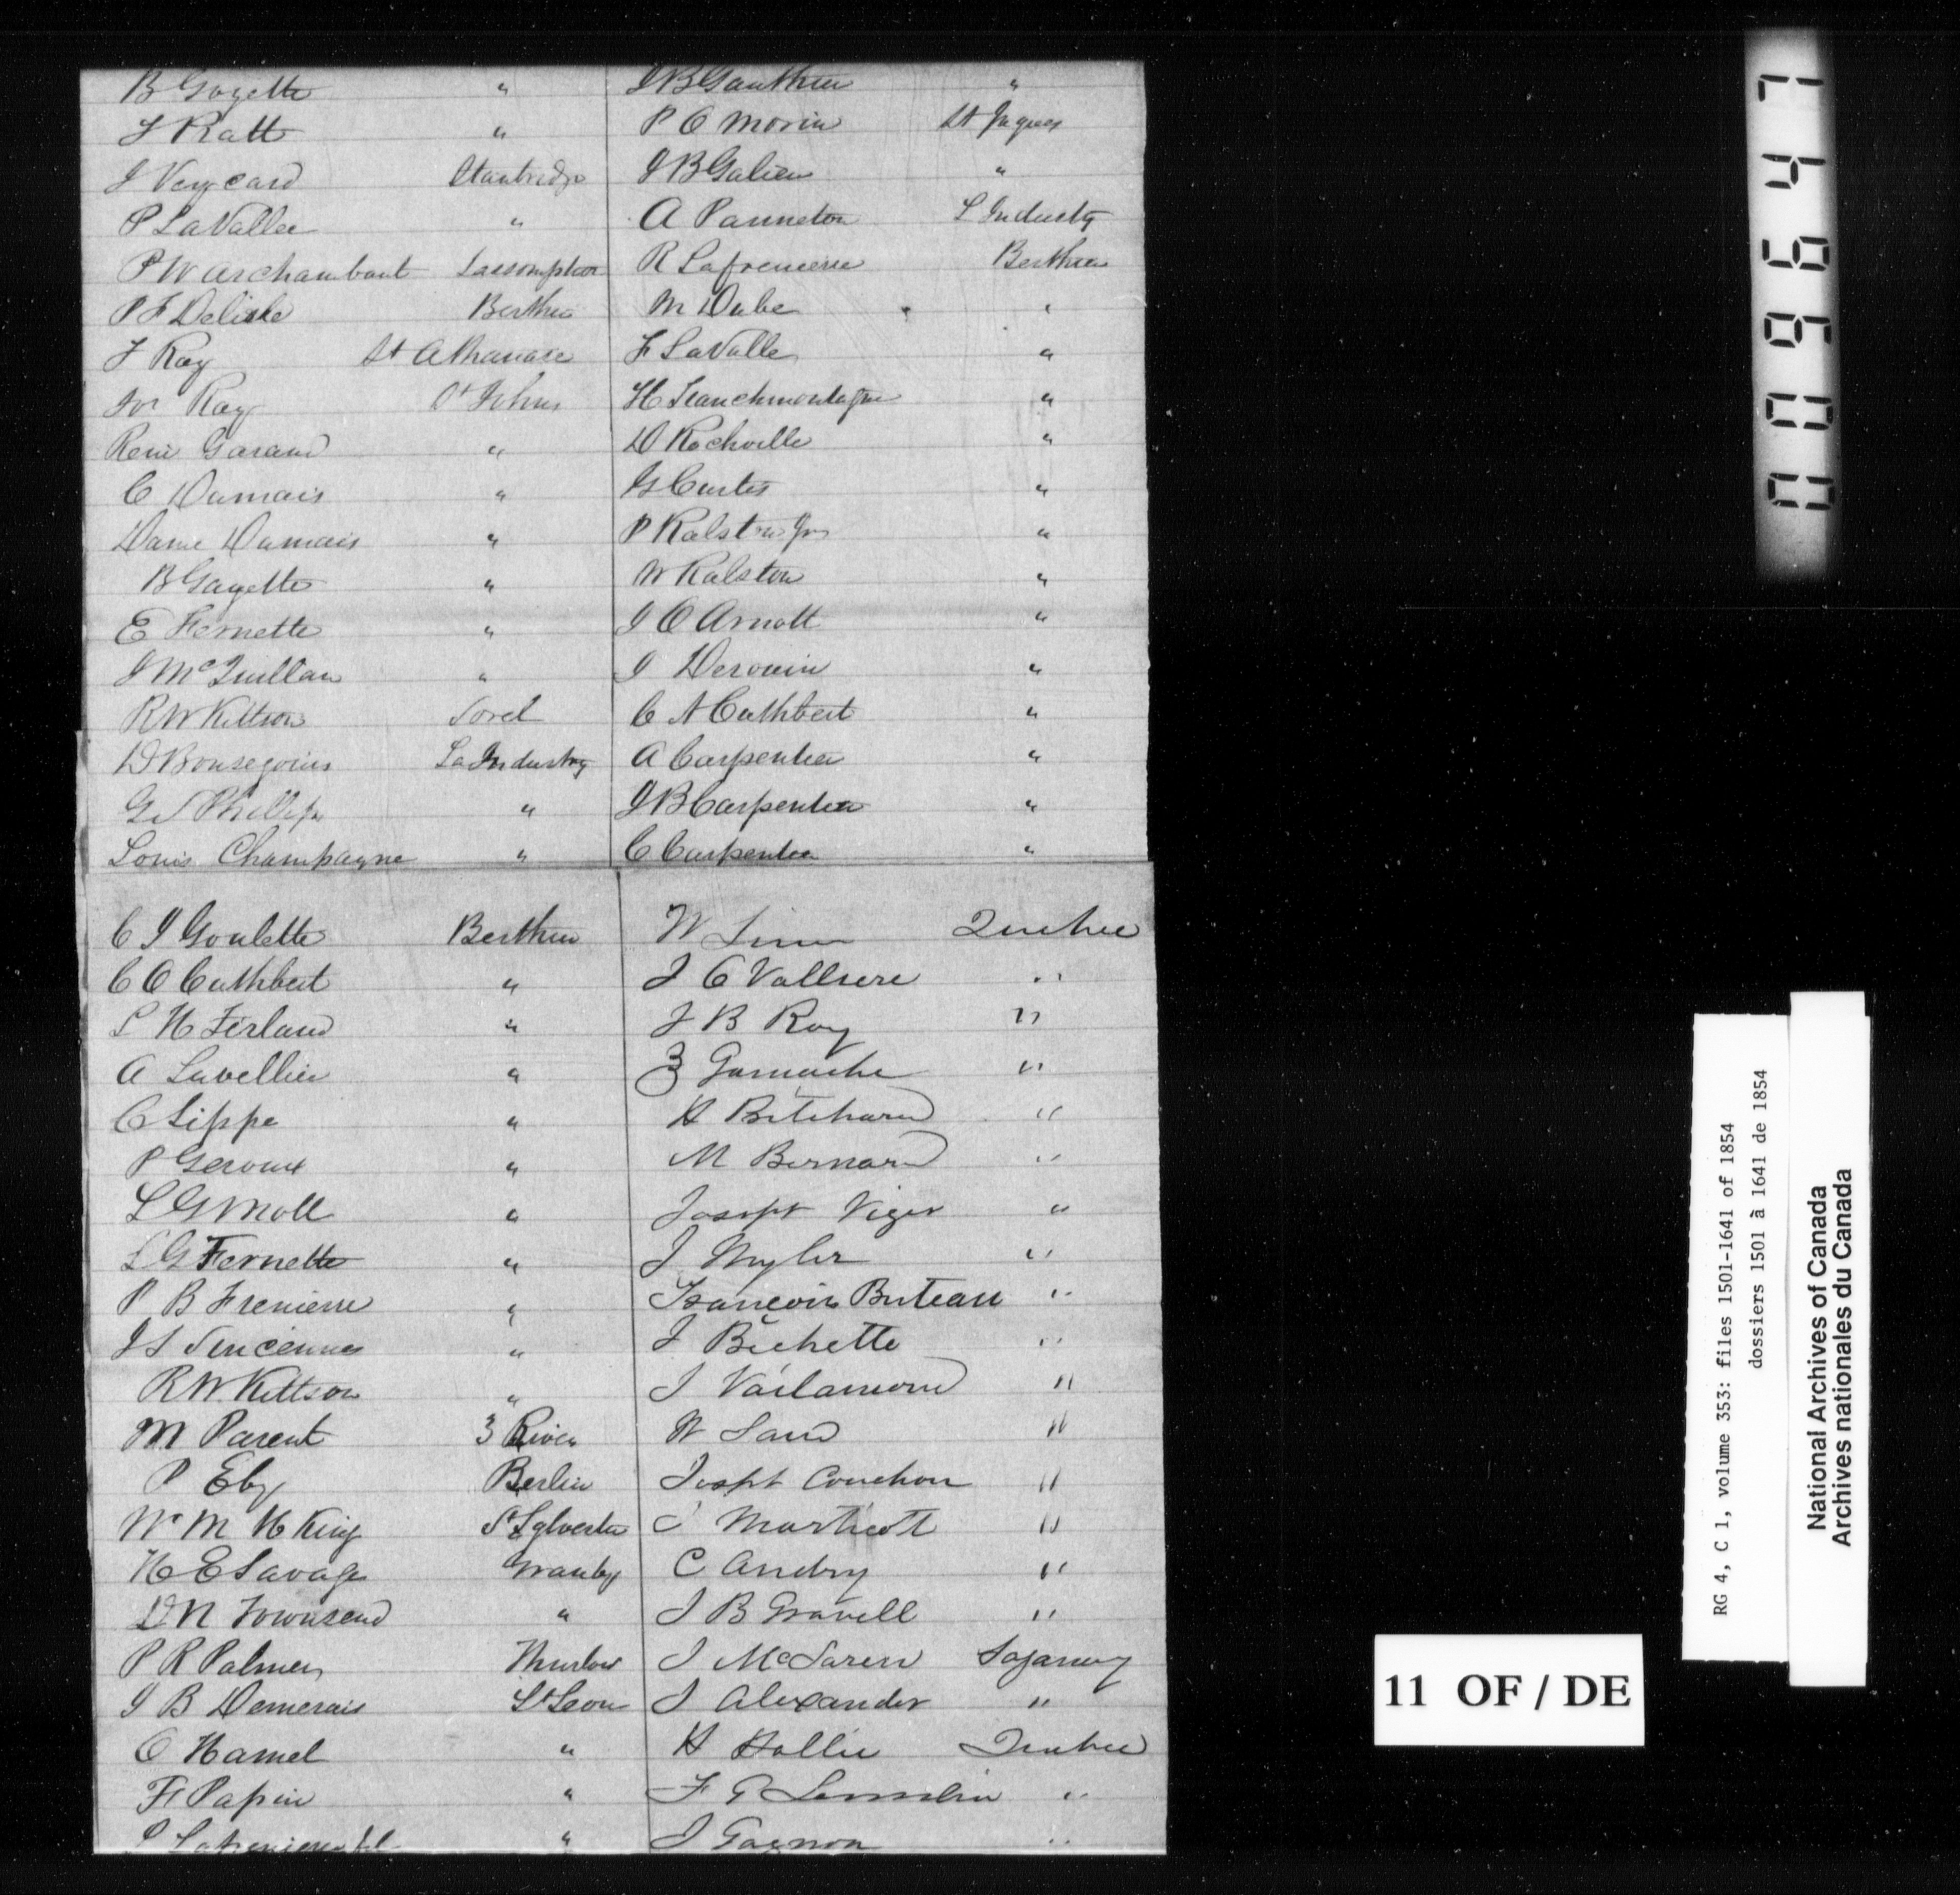 B Goyette "
J Ratt "
J Veycard Stanbridge
P LaVallee "
P W Archambault Lassomption
P F Delisle Berthier
J Ray St Athanase
Ray St Johns
René Garand "
C Dumais "
Dame Dumais "
B Gayette "
E Fernette "
J McQuillan "
R W Kittson Sorel
D Bonsegoins La Industry
G S Phillips "
Louis Champagne "
J B Gauthier "
P O Morin St Jaques
J B Galien "
A Panneton L Industry
R Lafreniere Berthier
M Dube "
F LaValle "
H Franchmontagne "
D Rochville "
G Curtis "
P Ralston Jr "
W Ralston "
J O Arnott "
J Derouin "
C A Cuthbert "
A Carpentier "
J B Carpentier "
C Carpentier "
C J Goulette Berthier
C O Cuthbert "
L H Ferland "
A Lavellier "
C Lippe "
P Geroux "
L G Moll "
L G Fernette "
P B Frenierre "
J S Vincennes "
R W Kittson "
M Parent 3 River
P Eby Berlin
Wm M H King St Sylvester
H E Savage Granby
D N Townsend "
P R Palmer Thurlow
J B Demerais St Leon
O Hamel "
F Papin "
L Lafreniere fil "
W Quebec
J O Valliere "
J B Roy "
Z Gamache "
H Britchard "
M Bernard "
Joseph Viger "
J Myler "
Francois Buteau "
J Bechette "
J Vailancourd "
W Laud "
Joseph Couchon "
Marticott "
C Andry "
J B Gravell "
J McLaren Sagamuy
J Alexander "
H Hallie Quebec
F G "
J Gagnon "
0009647
RG 4, C 1, volume 353: files 1501-1641 of 1854
dossiers 1501 à 1641 de 1854
National Archives of Canada
Archives nationales du Canada
11 OF / DE